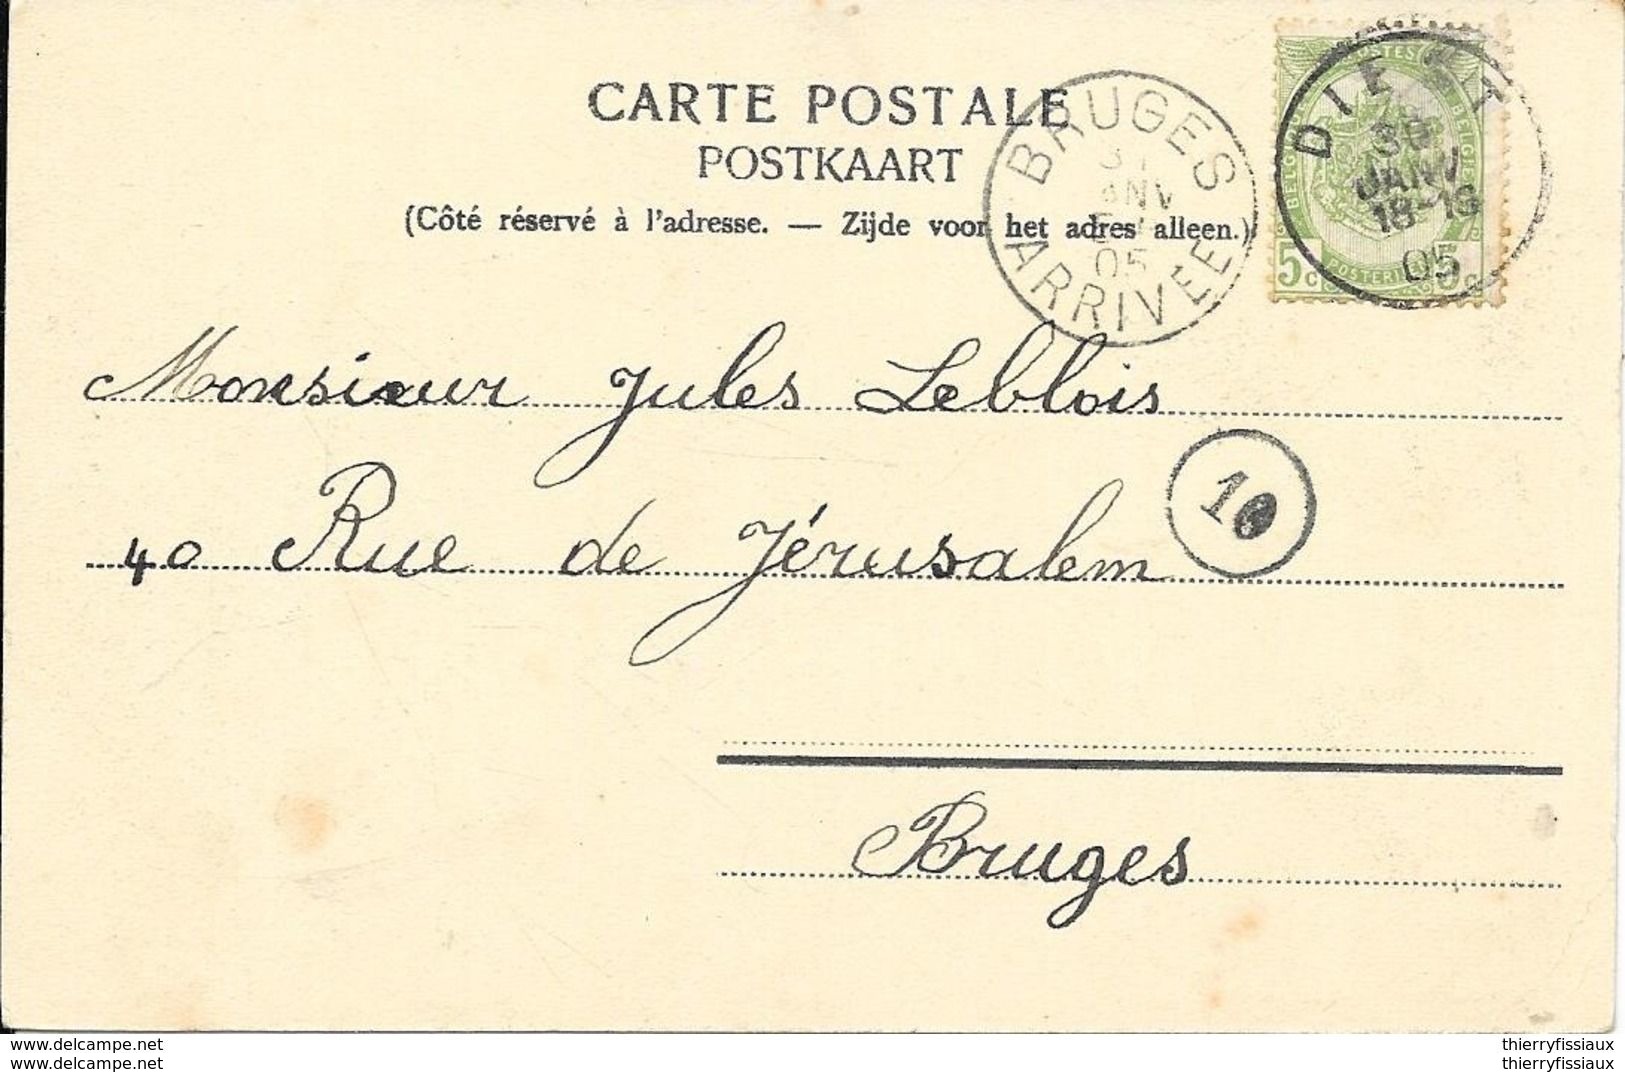 CARTE POSTALE
POSTKAART
(Côté réservé à l'adresse. — Zijde voor het adres alleen.)
BRUGES
31
ANV
05
ARRIVEE
POSTES
BELGIE
5c 5c
DIEST
30
JANV
18-19
05
Monsieur Jules Leblois
10
40 Rue de Jérusalem
Bruges
www.delcampe.net thierryfissiaux
www.delcampe.net thierryfissiaux